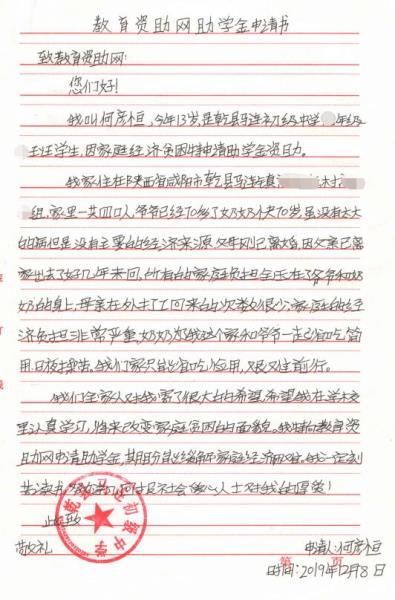 教育资助网助学金申请书
致教育资助网:
您们好!
我叫何彦桓,今年13岁,是乾县马连初级中学 年级
班学生,因家庭经济贫困特申请助学金资助。
我家住在陕西省咸阳市乾县马连镇 村
组,家里一共四口人,爷爷已经70多了奶奶个快70岁,虽没有太大
的病但是没有主要的经济来源,父母刚已离婚,因父亲已离
家出去了好几年未回,所有的家庭负担全压在了爷爷和奶
奶的身上,母亲在外打工回来的次数很少,家庭的经
济负担非常严重,奶奶为我这个家和爷爷一起省吃,简
用,日夜操劳,我们家只能省吃俭用,艰难前行。
我们全家人对我寄了很大的希望,希望我在学校
里认真学习,将来改变家庭贫困的面貌。我特向教育资
助网申请助学金,期盼能缓解家庭经济困难。我一定刻
苦读书,努力学习,回报社会爱心人士对我的厚爱!
此致
敬礼
申请人:何彦桓
时间:2019年12月8日
第 页
初级中学